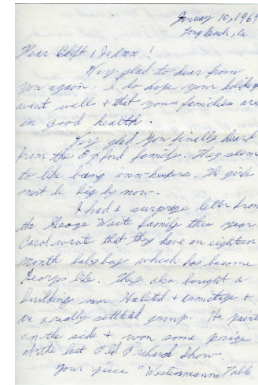 January 10, 1969
Long Beach, Ca.
Dear Cliff & !
Very glad to hear from
you again. I do hope your holiday
went well & that your families are
in good health.
Very glad you finally heard
from the family. They seem
to like being inn-keepers. The girls
must be big by now.
I had a surprise letter from
the George Waite family this year
Carol wrote that they have an eighteen
month baby boy which has become
George's life. They also bought a
building near &
are really settled group. He paints
on the side & won some prizes
at the last Show.
Your piece "Westermann's Table